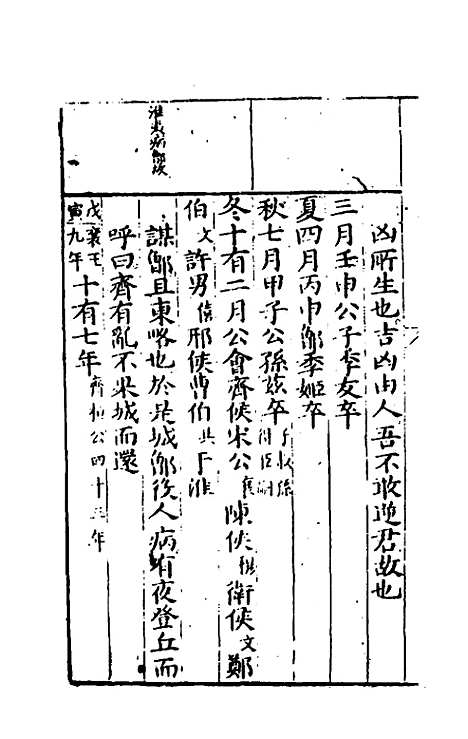 凶所生也吉凶由人吾不敢逆君故也
三月壬申公子季友卒
夏四月丙申鄫季姬卒
秋七月甲子公孫茲卒
冬十有二月公會齊侯宋公襄陳侯穆衛侯文鄭
伯文許男僖邢侯曹伯共于淮
淮夷病鄫故
謀鄫且東略也於是城鄫役人病有夜登丘而
呼曰齊有亂不果城而還
戊寅襄王九年十有七年齊桓公四十三年